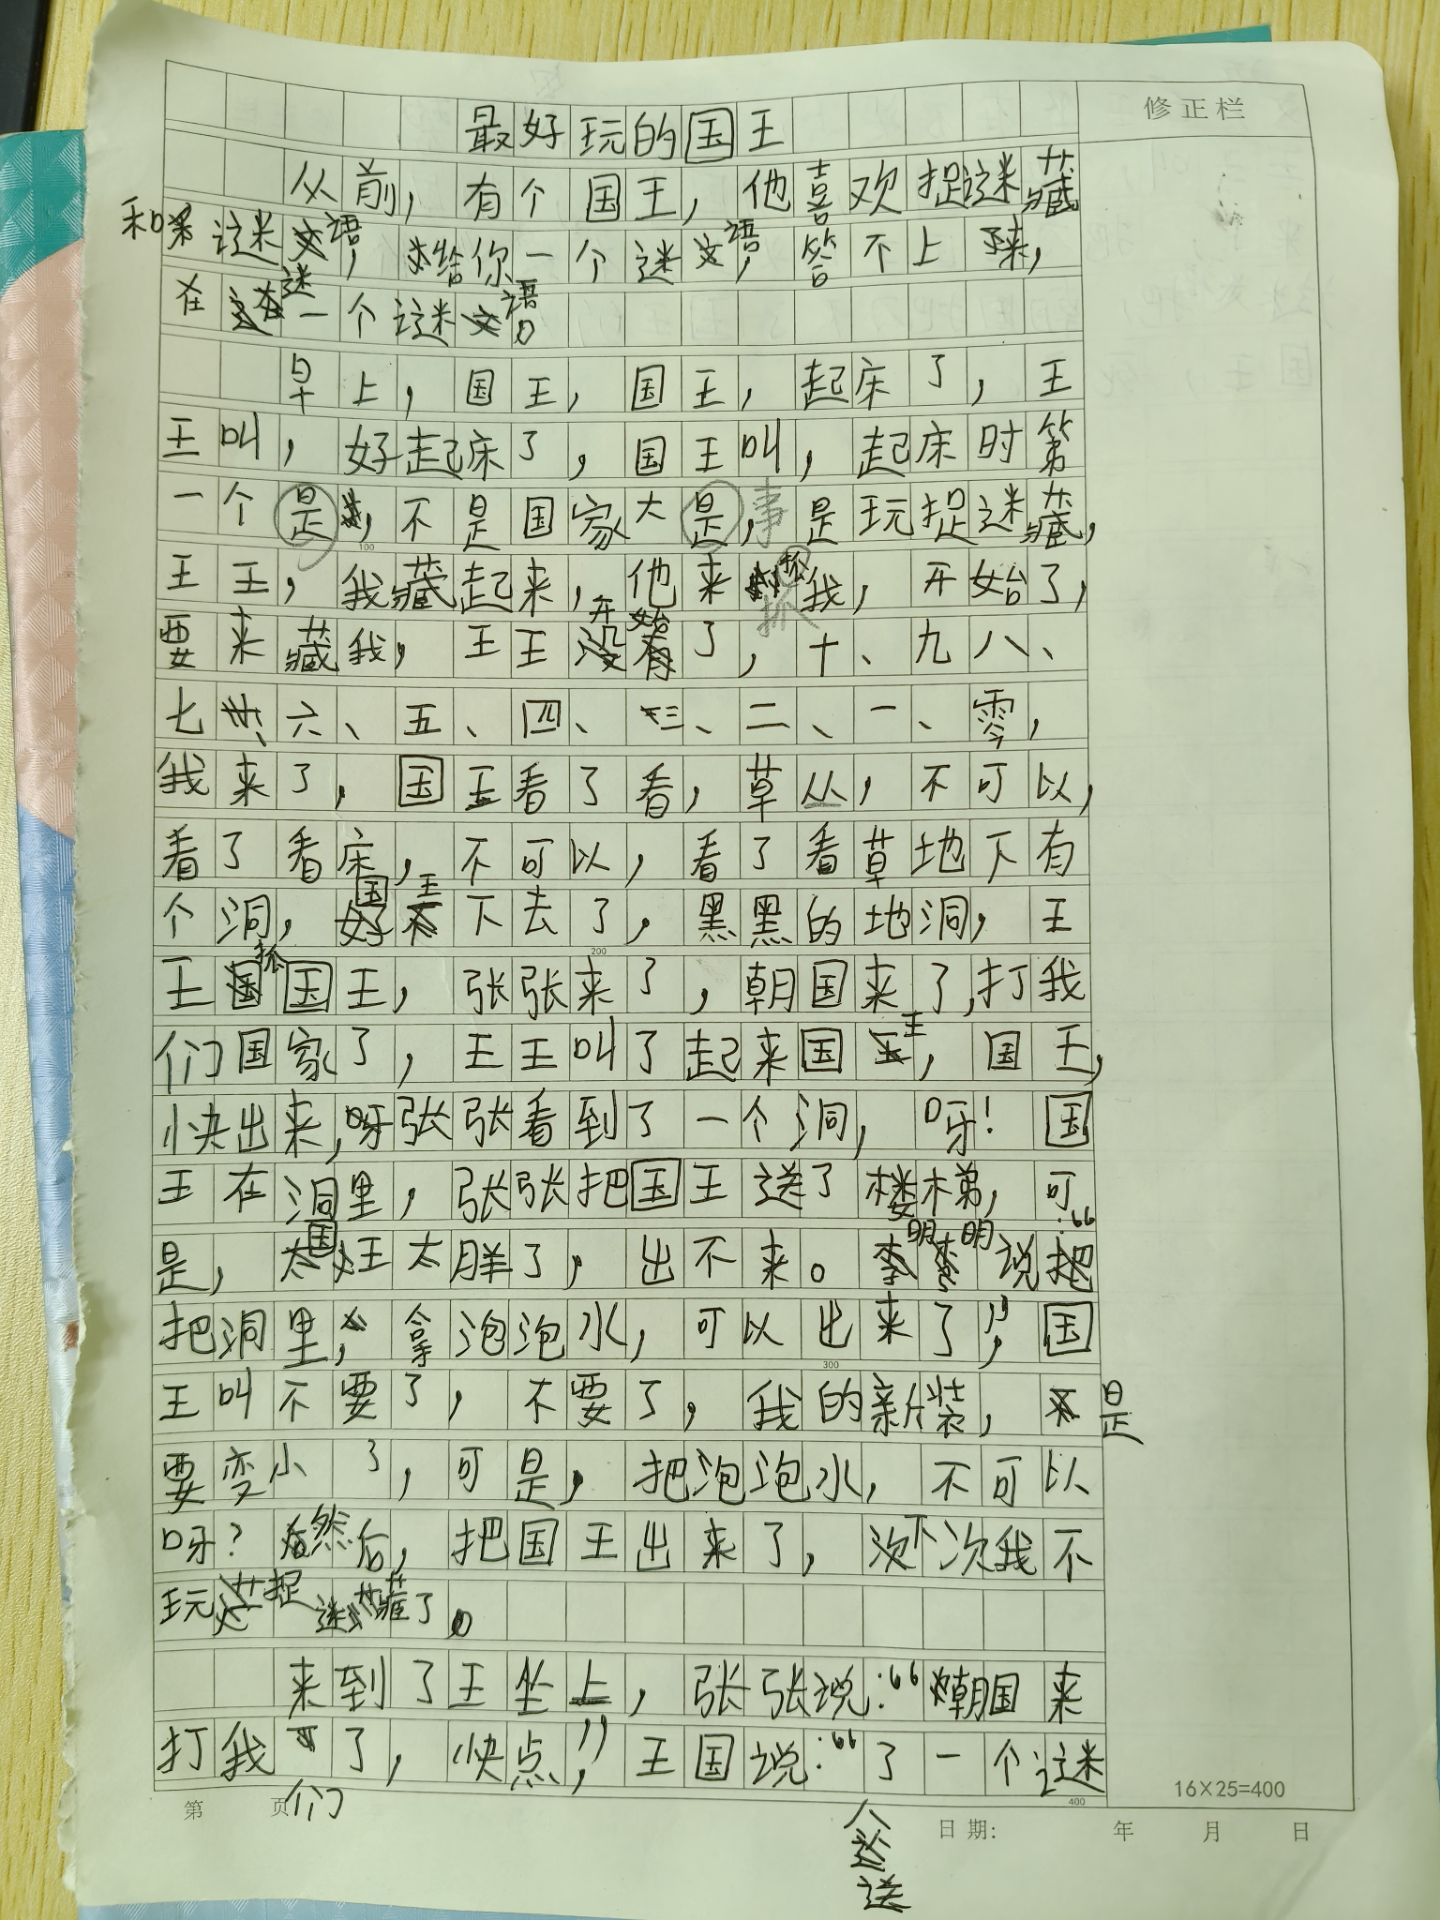 修正栏
最好玩的国王
从前，有个国王，他喜欢捉迷藏
和谜语，给你一个谜语，答不上来，
在送一个谜语。
早上，国王，国王，起床了，王
王叫，好起床了，国王叫，起床时第
一个是，不是国家大是，事是玩捉迷藏，
王王，我藏起来，他来抓我，开始了，
抓
要来藏我，王王开始了，十、九八、
七、六、五、四、三、二、一、零，
我来了，国王看了看，草丛，不可以，
看了看床，不可以，看了看草地下有
个洞，国王下去了，黑黑的地洞，王
王抓国王，张张来了，朝国来了，打我
们国家了，王王叫了起来国王，国王，
快出来，呀张张看到了一个洞，呀！国
王在洞里，张张把国王送了楼梯，可
是，国王太胖了，出不来。明明说：“
把洞里，拿泡泡水，可以出来了”，国
王叫不要了，不要了，我的新装，是
要变小了，可是，把泡泡水，不可以
呀？然后，把国王出来了，下次我不
玩捉迷藏了。
来到了王坐上，张张说：“朝国来
打我们了，快点，”王国说：“送了一个谜
100
200
300
400
16×25=400
第 页
日期： 年 月 日